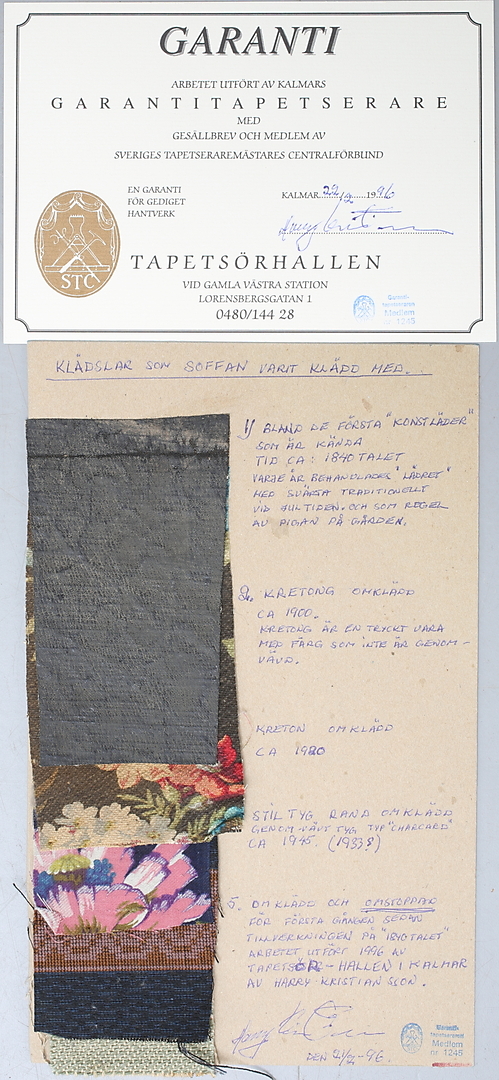 GARANTI
ARBETET UTFÖRT AV KALMARS
GARANTITAPETSERARE
MED
GESÄLLBREV OCH MEDLEM AV
SVERIGES TAPETSERAREMÄSTARES CENTRALFÖRBUND
EN GARANTI
FÖR GEDIGET
HANTVERK
KALMAR 22/2 1996
STC
TAPETSÖRHALLEN
VID GAMLA VÄSTRA STATION
LORENSBERGSGATAN 1
0480/144 28
Garanti-
tapetseraren
Medlem
nr 1245
KLÄDSLAR SON SOFFAN VARIT KLÄDD MED...
1) BLAND DE FÖRSTA "KONSTLÄDER"
SOM ÄR KÄNDA
TID CA: 1840 TALET
VARJE ÅR BEHANDLADES "LÄDRET"
MED SVÄRTA TRADITIONELLT
VID JULTIDEN. OCH SOM REGEL
AV PIGAN PÅ GÅRDEN.
2. KRETONG OMKLÄDD
CA 1900.
KRETONG ÄR EN TRYCKT VARA
MED FÄRG SOM INTE ÄR GENOM-
VÄVD.
KRETON OMKLÄDD
CA 1920
STILTYG RAND OMKLÄDD
GENOM-VÄVT TYG TYP "CHARCARD"
CA 1945. (1933?)
5. OMKLÄDD OCH OMSTOPPAD
FÖR FÖRSTA GÅNGEN SEDAN
TILLVERKNINGEN PÅ "1840TALET"
ARBETET UTFÖRT 1996 AV
TAPETSÖR-HALLEN I KALMAR
AV HARRY KRISTIANSSON.
DEN 21/2-96.
Garanti-
tapetseraren
Medlem
nr 1245